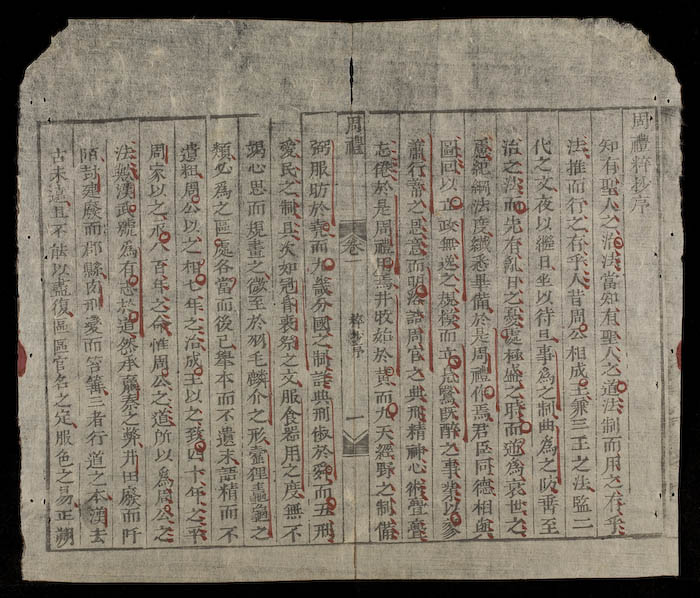 周禮粹抄序
知有聖人之治法當知有聖人之道法制而用之存乎
法推而行之存乎人昔周公相成王兼三王之法監二
代之文夜以繼日坐以待旦事為之制曲為之防畨至
治之法而先有亂日之憂處極盛之時而逆為衰世之
慮紀綱法度纖悉畢備於是周禮作焉君臣同德相與
圖回以立政無逸之規模而立鳧鷖既醉之事業以
行葦之恩意而明誥周官之典刑精神心術亹亹
忘倦於是周禮用焉井牧始於黄而九天經野之制備
弼服昉於堯而九畿分國之制詳典刑俶於舜而五刑
愛民之制具次如冠昏喪祭之文服食器用之度無不
竭心思而規畫之微至於羽毛鱗介之形雹貍蟲龜之
類必為之區處各當而後已舉本而不遺末語精而不
遺粗周公以之相七年之治成王以之致四十年之平
周家以之永八百年之命惟周公之道所以為周公之
法歟漢武號為有志於道然承嬴秦之弊井田廢而阡
陌封建廢而郡縣肉刑變而笞箠三者行道之本漢去
古未遠且不能以盡復區區官名之定服色之易正朔
周禮
卷一
粹抄序
一